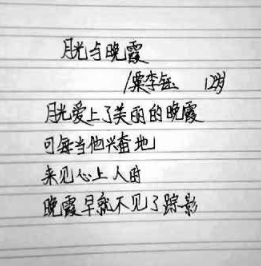 月光与晚霞
/粟李钰 12岁
月光爱上了美丽的晚霞
可每当他兴奋地
来见心上人时
晚霞早就不见了踪影